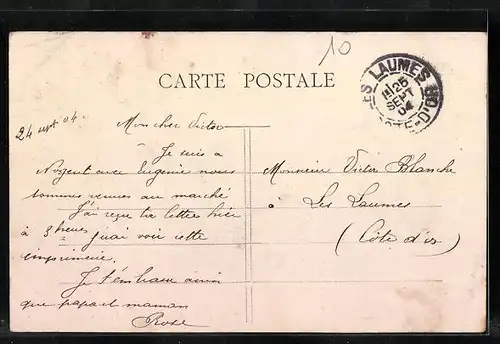 10
CARTE POSTALE
LES LAUMES
25
SEPT
04
24 sept 04.
Mon cher Victor
Je suis à
Nogent avec Eugenie nous
sommes venues au marché
J'ai reçu ta lettre hier
à 3 heures j'irai voir cette
imprimerie.
Je t'embrasse ainsi
que papa et maman
Rose
Monsieur Victor Blanche
à Les Laumes
(Côte d'or)